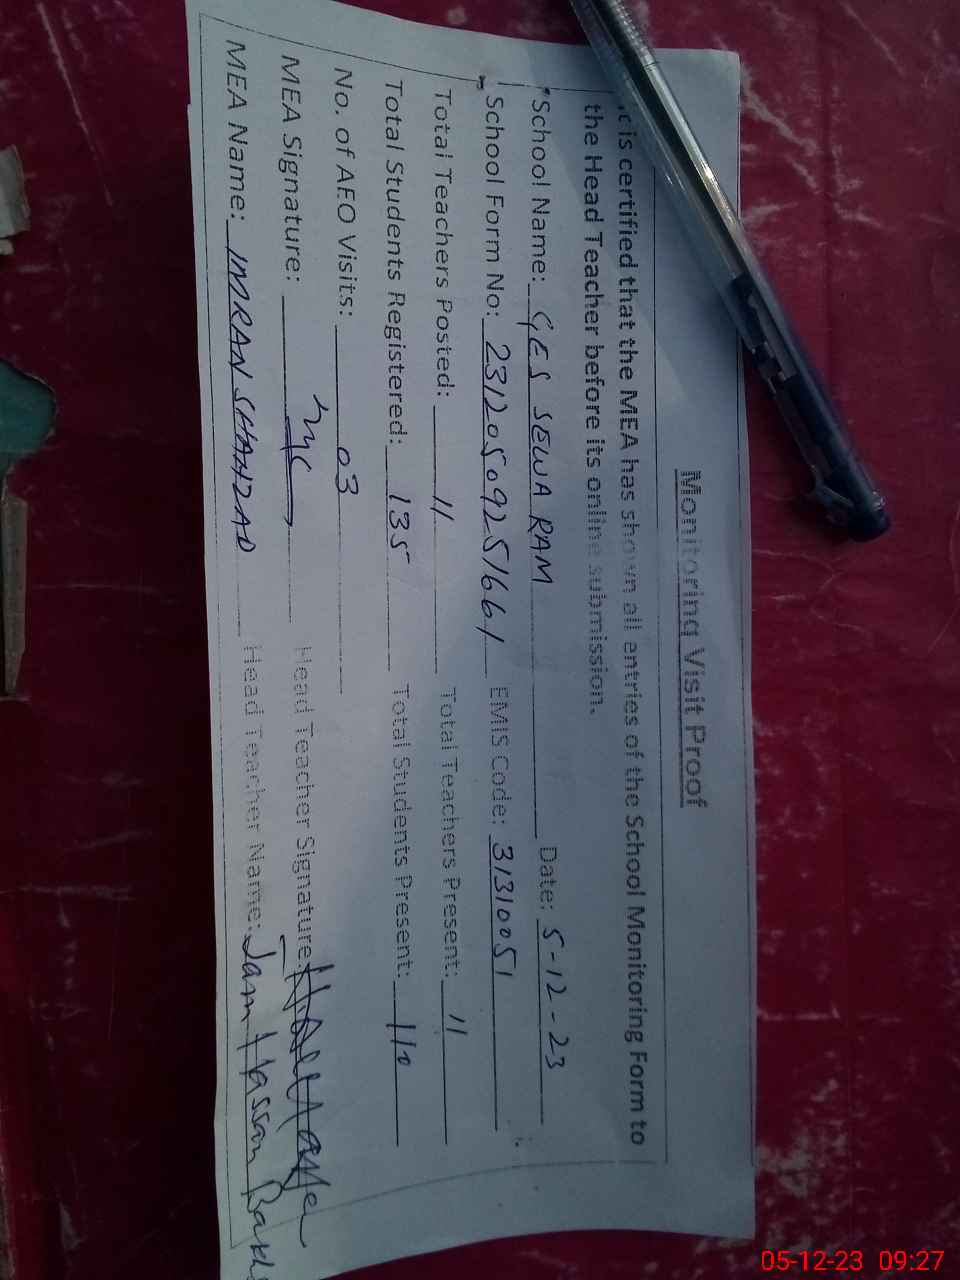 Monitoring Visit Proof
is certified that the MEA has shown all entries of the School Monitoring Form to
the Head Teacher before its online submission.
School Name: GES SEWA RAM Date: 5-12-23
School Form No: 23120509251661 EMIS Code: 31310051
Total Teachers Posted: 11 Total Teachers Present: 11
Total Students Registered: 135 Total Students Present: 110
No. of AEO Visits: 03
MEA Signature: Head Teacher Signature:
MEA Name: IMRAN SHAHZAD Head Teacher Name: Jam Hassan
05-12-23 09:27